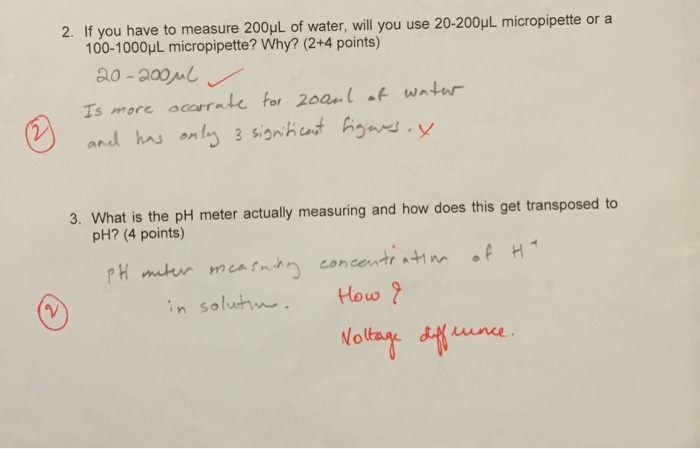 2. If you have to measure 200µL of water, will you use 20-200µL micropipette or a
100-1000µL micropipette? Why? (2+4 points)
20-200µL ✓
Is more accurate for 200ml of water
2 and has only 3 significant figures. X
3. What is the pH meter actually measuring and how does this get transposed to
pH? (4 points)
pH meter measuring concentration of H+
2 in solution. How?
Voltage difference.